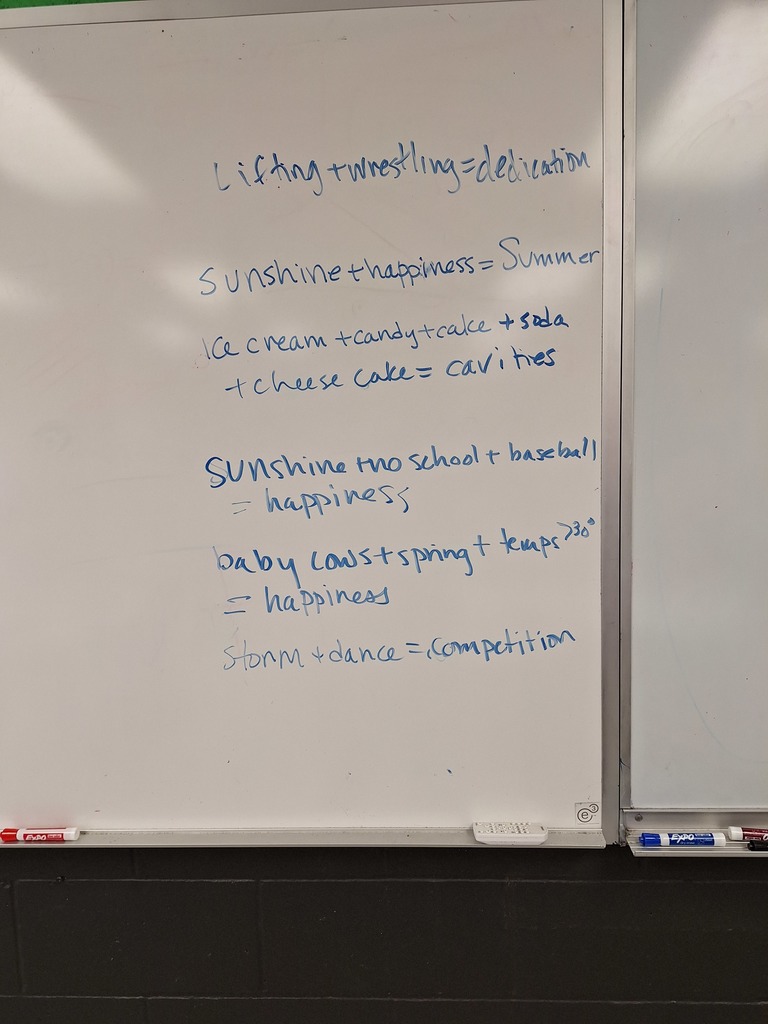 Lifting+wrestling=dedication
sunshine+happiness=Summer
Ice cream+candy+cake+soda
+cheese cake=cavities
sunshine+no school+baseball
=happiness
baby cows+spring+temps>30°
=happiness
storm+dance=competition
e3
EXPO
EXPO